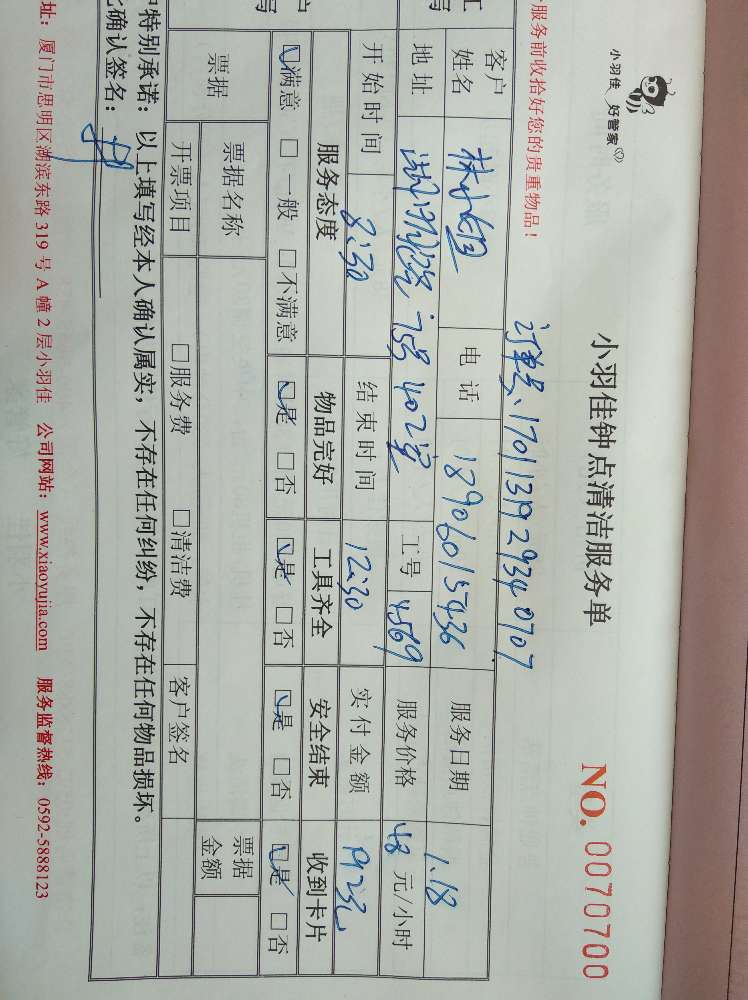 小羽佳 好管家
服务前收拾好您的贵重物品！
小羽佳钟点清洁服务单
NO. 0070700
订单号：1701131929340707
客户姓名 电话 18906015436 服务日期 1.18
地址 75号402室 工号 4569 服务价格 48 元/小时
开始时间 8:30 结束时间 12:30 实付金额 192元
服务态度 物品完好 工具齐全 安全结束 收到卡片
☑满意 □一般 □不满意 ☑是 □否 ☑是 □否 ☑是 □否 ☑是 □否
票据 票据名称 票据金额
开票项目 □服务费 □清洁费 客户签名
特别承诺：以上填写经本人确认属实，不存在任何纠纷，不存在任何物品损坏。
确认签名：
址：厦门市思明区湖滨东路 319 号 A 幢 2 层小羽佳 公司网站：www.xiaoyujia.com 服务监督热线：0592-5888123